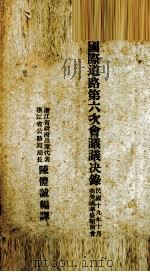 國際道路第六次會議議决錄
民國十九年十月
在美國華盛頓開會
浙江省政府出席代表
浙江省公路局局長
陳體誠編譯